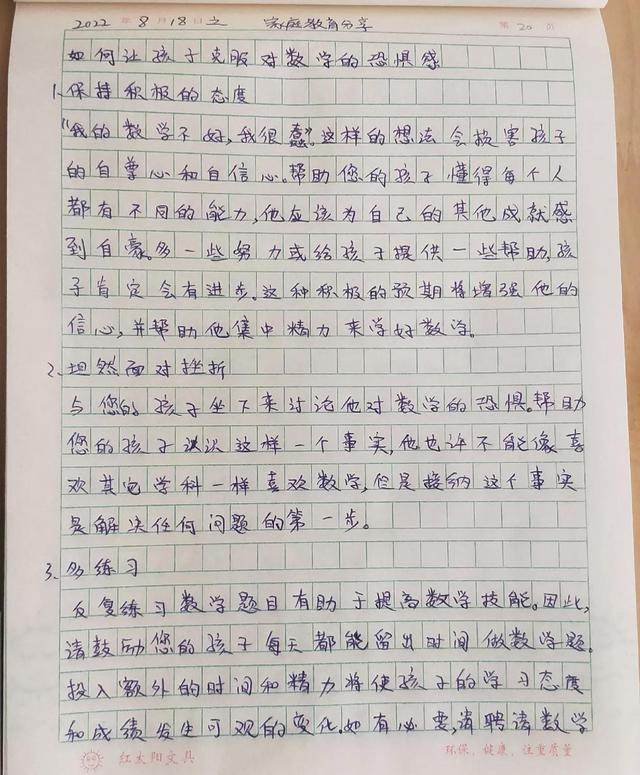 2022 年 8 月 18 日之 家庭教育分享 第 20 页
如何让孩子克服对数学的恐惧感
1、保持积极的态度
“我的数学不好,我很蠢”。这样的想法会损害孩子
的自尊心和自信心。帮助您的孩子懂得每个人
都有不同的能力,他应该为自己的其他成就感
到自豪。多一些努力或给孩子提供一些帮助,孩
子肯定会有进步。这种积极的预期将增强他的
信心,并帮助他集中精力来学好数学。
2、坦然面对挫折
与您的孩子坐下来讨论他对数学的恐惧。帮助
您的孩子认识这样一个事实,他也许不能像喜
欢其它学科一样喜欢数学,但是接纳这个事实
是解决任何问题的第一步。
3、多练习
反复练习数学题目有助于提高数学技能。因此,
请鼓励您的孩子每天都能留出时间做数学题。
投入额外的时间和精力将使孩子的学习态度
和成绩发生可观的变化。如有必要,请聘请数学
红太阳文具 环保、健康、注重质量